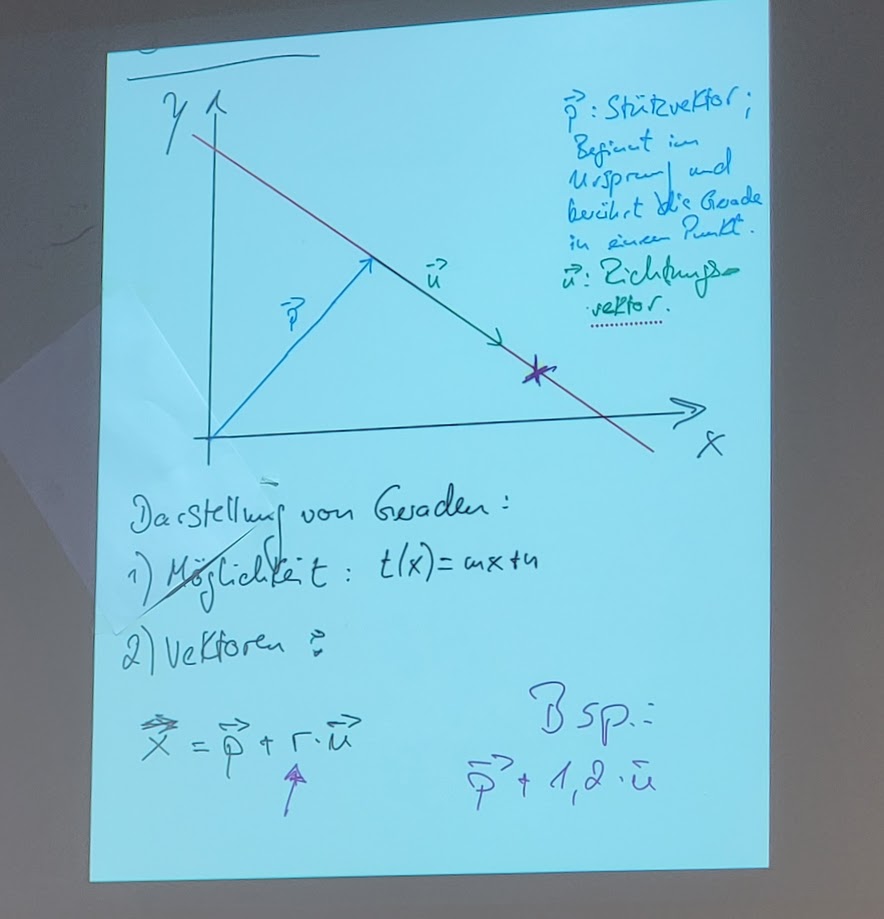 y
p⃗ : Stützvektor;
Beginnt im
Ursprung und
berührt die Gerade
in einem Punkt.
u⃗ : Richtungs-
vektor.
u⃗
p⃗
x
Darstellung von Geraden:
1) Möglichkeit: t(x)= mx+n
2) Vektoren:
x⃗ = p⃗ + r·u⃗
Bsp.:
p⃗ + 1,2·u⃗